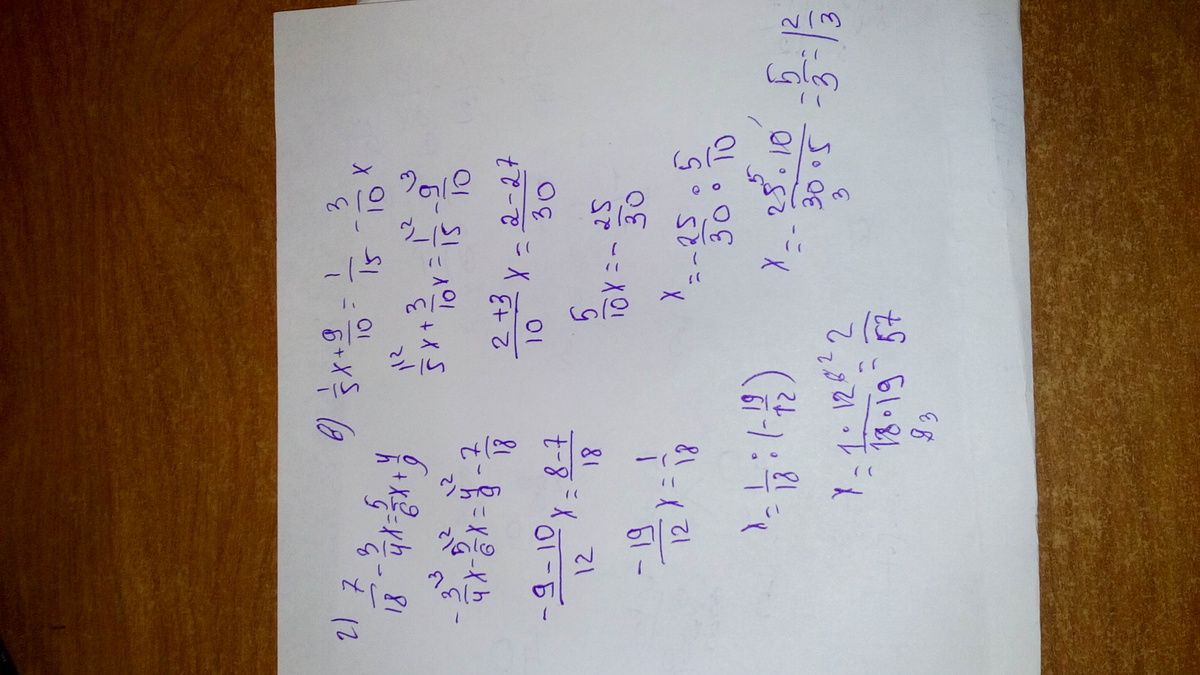 г) 7/18 - 3/4 x = 5/6 x + 4/9
- 3/4 \3 x - 5/6 \2 x = 4/9 \2 - 7/18
(-9-10)/12 x = (8-7)/18
- 19/12 x = 1/18
x = 1/18 : (- 19/12)
x = (1 · 12 2)/(18 · 19) = 2/57
3
в) 1/5 x + 9/10 = 1/15 - 3/10 x
1/5 \2 x + 3/10 x = 1/15 \2 - 9/10 \3
(2+3)/10 x = (2-27)/30
5/10 x = - 25/30
x = - 25/30 : 5/10
x = - (25 5 · 10 1)/(30 3 · 5) = 5/3 = 1 2/3